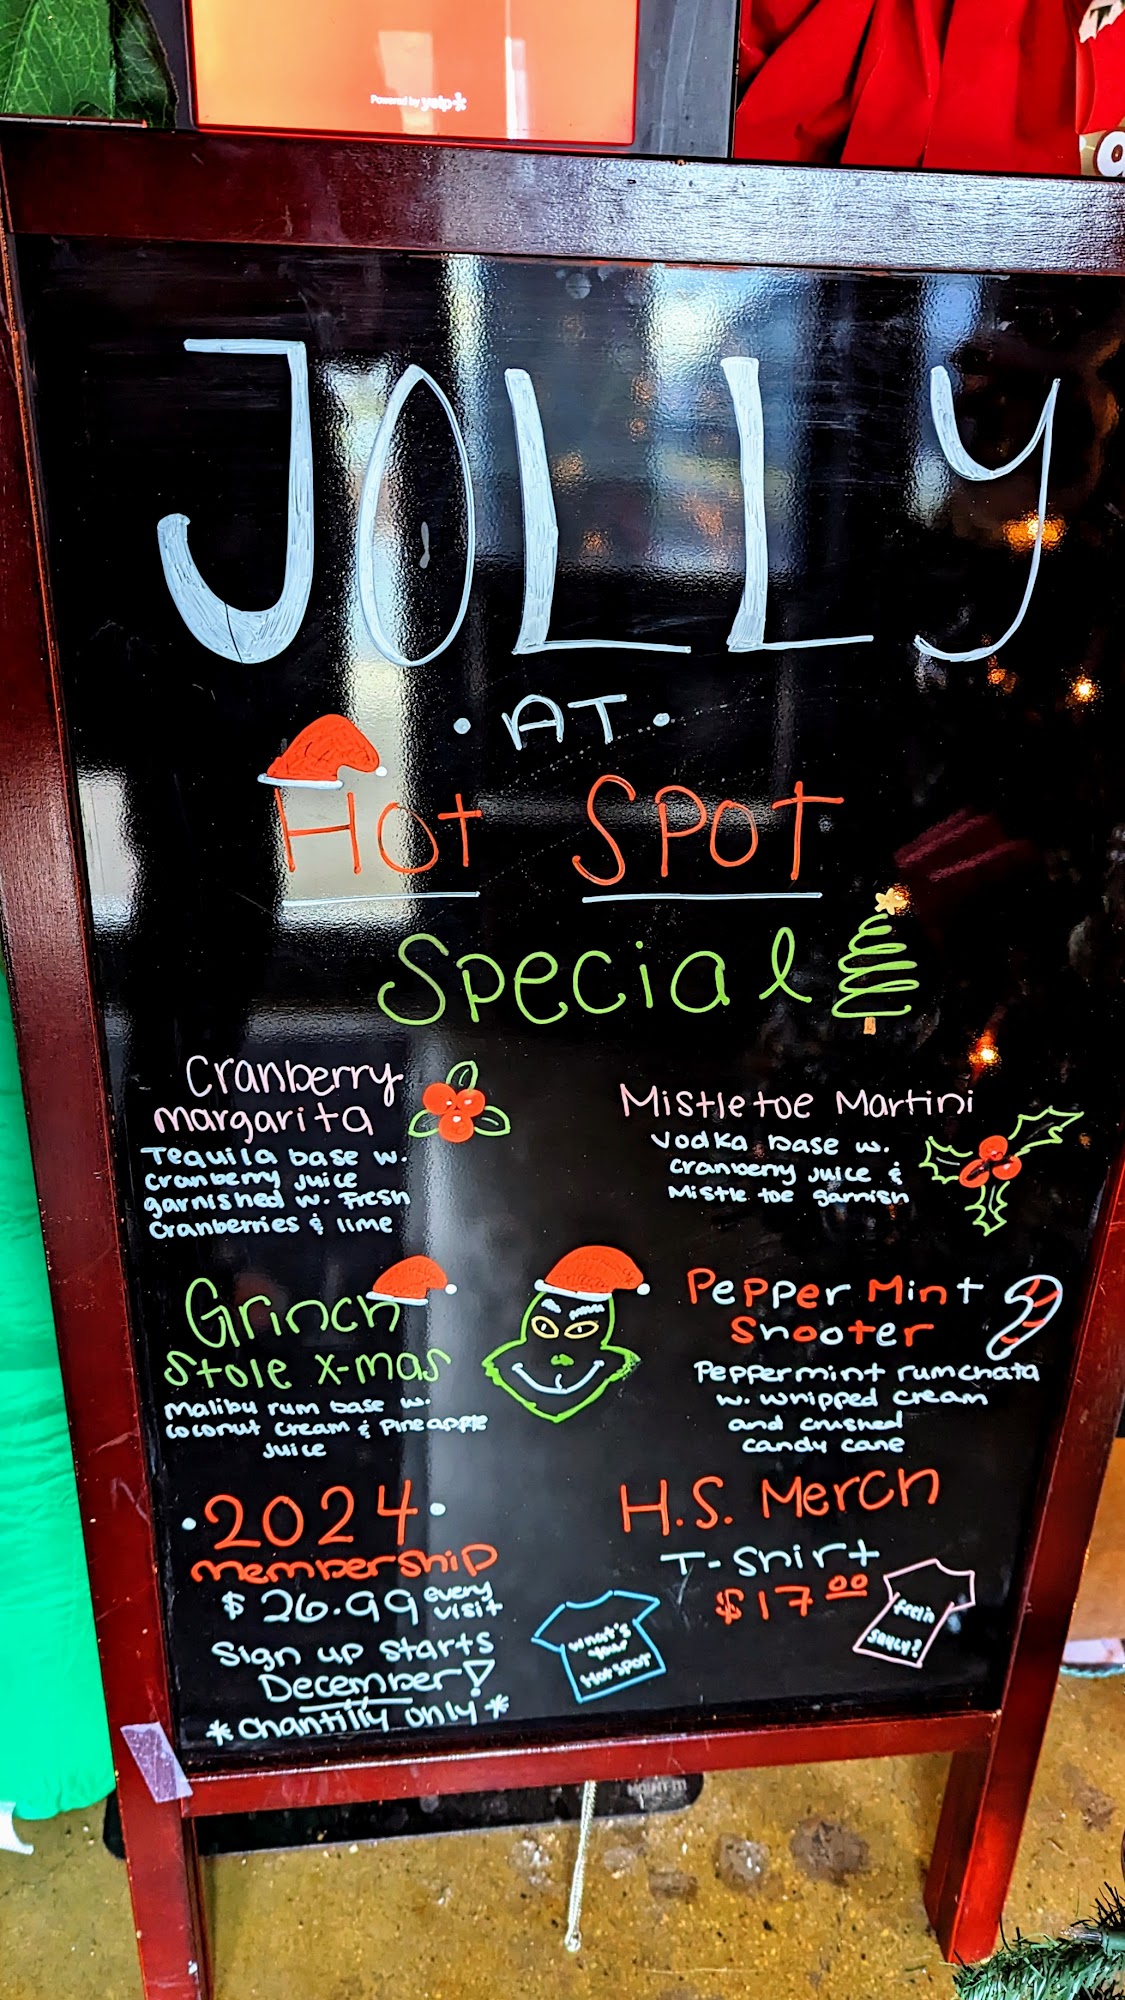 Powered by yelp
JOLLY
· AT ·
Hot Spot
Special
Cranberry
margarita
Tequila base w.
cranberry juice
garnished w. Fresh
Cranberries & lime
Mistletoe Martini
Vodka base w.
cranberry juice &
Mistle toe garnish
Grinch
Stole X-mas
Malibu rum base w.
coconut cream & Pineapple
Juice
Pepper Mint
Shooter
Peppermint rumchata
w. whipped cream
and crushed
candy cane
· 2024 ·
membership
$ 26.99 every
visit
Sign up starts
December
*Chantilly only*
H.S. Merch
T-Shirt
$17.00
what's
your
Hot spot
feelin
saucy?